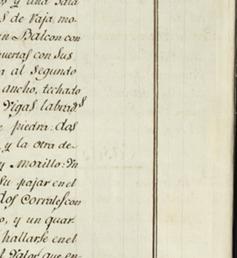 y una sala
s de vaja, mo-
un Balcon con
puertas con sus
a al segundo
ancho, techado
Vigas labrad^s
piedra: dos
y la otra de-
y morillo: Yn
su pajar en el
dos Corrales con
o, y un quar
hallarse en el
l valor que en-